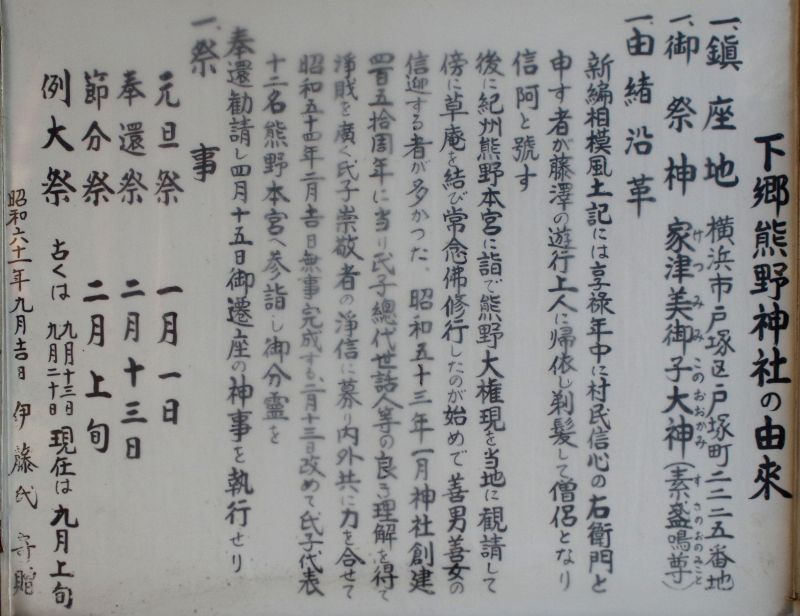 下郷熊野神社の由來
一、鎮座地 横浜市戸塚区戸塚町二二三五番地
一、御祭神 家津美御子大神(素盞嗚尊)
けつみみこのおおかみ すさのおのみこと
一、由緒沿革
新編相模風土記には享禄年中に村民信心の右衛門と
申す者が藤澤の遊行上人に帰依し剃髪して僧侶となり
信阿と號す
後に紀州熊野本宮に詣で熊野大権現を当地に観請して
傍に草庵を結び常念佛修行したのが始めで善男善女の
信迎する者が多かつた、昭和五十三年一月神社創建
四百五拾周年に当り氏子總代世話人等の良き理解を得て
淨賎を廣く氏子崇敬者の淨信に募り内外共に力を合せて
昭和五十四年二月吉日無事完成する、二月十三日改めて氏子代表
十二名熊野本宮へ参詣し御分靈を
奉還勧請し四月十五日御遷座の神事を執行せり
一、祭事
元旦祭 一月一日
奉還祭 二月十三日
節分祭 二月上旬
例大祭 古くは 九月十三日 九月二十日 現在は九月上旬
昭和六十一年九月吉日 伊藤 寄贈